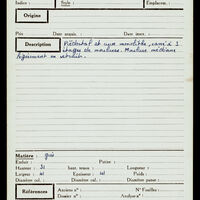 Indice : Style : Emplacem. :
Origine
Prix Date acquis. : Date inscr. :
Description Piédestal et cuve monolithe, carré à 3
étages de moulures. Moulure médiane
légèrement en retrait.
Matière : grès
Endter : Patine :
Hauteur : 31 haut. tenon : Longueur :
Largeur : 41 Epaisseur : 41 Poids :
Diamètre sup. : Diamètre inf. : Diamètre panse :
Références Anciens n° : N° Fouilles :
Dossier n° : Analyse n° :